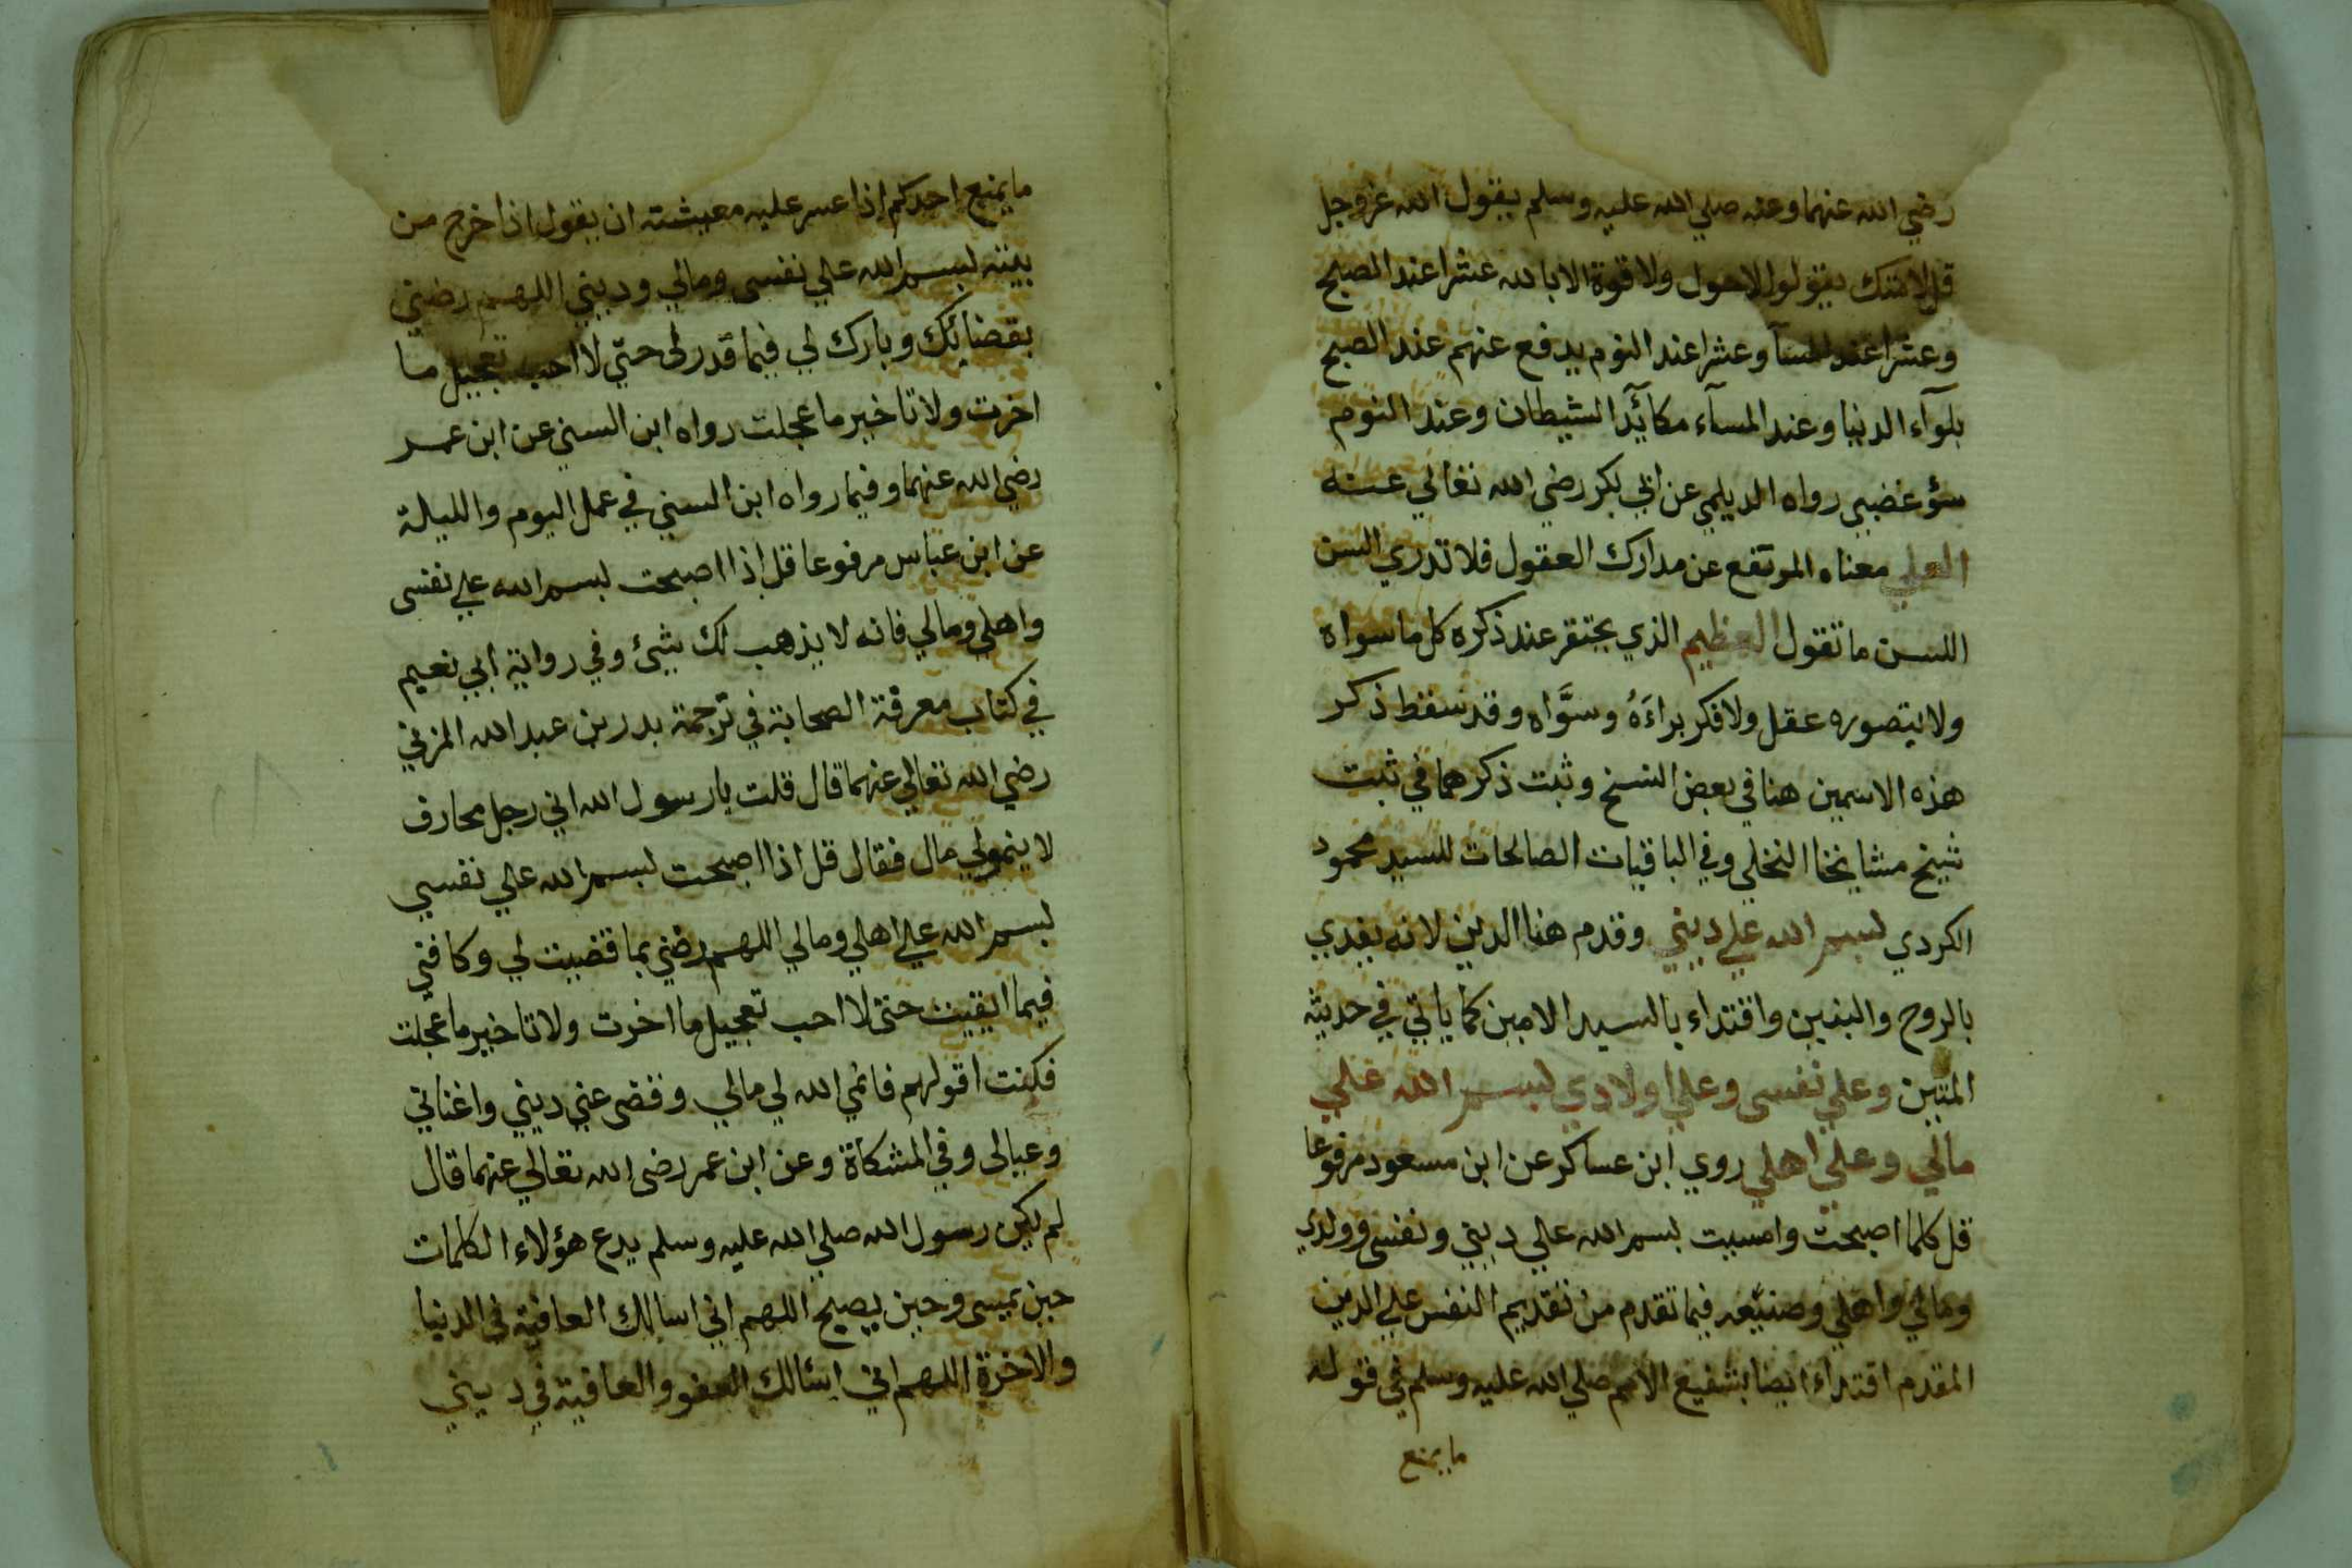 رضي الله عنهما وعنه صلي الله عليه وسلم يقول الله عز وجل
قل لامتك يقولوا لا حول ولا قوة الا بالله عشرا عند الصبح
وعشرا عند المسآ وعشرا عند النوم يدفع عنهم عند الصبح
بلوآء الدنيا وعند المسآء مكآئد الشيطان وعند النوم
سؤ غضبي رواه الديلمي عن ابي بكر رضي الله تعالي عنه
العلي معناه المرتفع عن مدارك العقول فلا تدري السن
اللسن ما تقول العظيم الذي يحتقر عند ذكره كل ما سواه
ولا يتصوره عقل ولا فكر براءَهُ وسوَّاه وقد سقط ذكر
هذه الاسمين هنا في بعض النسخ وثبت ذكرهما في ثبت
شيخ مشايخنا النخلي وفي الباقيات الصالحات للسيد محمود
الكردي لبسم الله علي ديني وقدم هنا الدين لانه يفدي
بالروح والبنين واقتداء بالسيد الامين كما ياتي في حديثه
المتين وعلي نفسى وعلي اولادي لبسم الله علي
مالي وعلي اهلي روي ابن عساكر عن ابن مسعود مرفوعا
قل كلما اصبحت وامسيت بسم الله علي ديني ونفسى وولدي
ومالي واهلي وصنيعه فيما تقدم من تقديم النفس علي الدين
المقدم اقتداء ايضا بشفيع الامم صلي الله عليه وسلم في قوله
ما يمنع
ما يمنع احدكم إذا عسر عليه معيشته ان يقول اذا خرج من
بيته لبسم الله علي نفسى ومالي وديني اللهم رضني
بقضائك وبارك لي فيما قدر لى حتي لا احب تعجيل ما
اخرت ولا تاخير ما عجلت رواه ابن السني عن ابن عمر
رضي الله عنهما وفيما رواه ابن السني في عمل اليوم والليلة
عن ابن عباس مرفوعا قل إذا اصبحت لبسم الله علي نفسى
واهلي ومالي فانه لا يذهب لك شيئ وفي رواية ابي نعيم
في كتاب معرفة الصحابة في ترجمة بدر بن عبد الله المزني
رضي الله تعالي عنهما قال قلت يا رسول الله اني رجل محارف
لا ينمو لي مال فقال قل اذا اصبحت لبسم الله علي نفسي
لبسم الله علي اهلي ومالي اللهم رضني بما قضيت لي وكافني
فيما ابقيت حتى لا احب تعجيل ما اخرت ولا تاخير ما عجلت
فكنت اقولهم فانمي الله لي مالي وقضى عني ديني واغناني
وعيالى وفي المشكاة وعن ابن عمر رضى الله تعالي عنهما قال
لم يكن رسول الله صلي الله عليه وسلم يدع هؤلاء الكلمات
حين يمسى وحين يصبح اللهم اني اسالك العافية في الدنيا
والاخرة اللهم اني اسئالك العفو والعافية في ديني